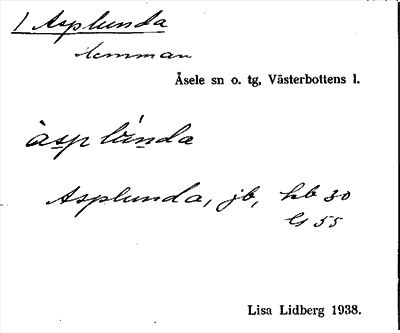 1 Asplunda
hemman
Åsele sn o. tg, Västerbottens l.
àsplúnda
Asplunda, jb, hb 30
ls 55
Lisa Lidberg 1938.